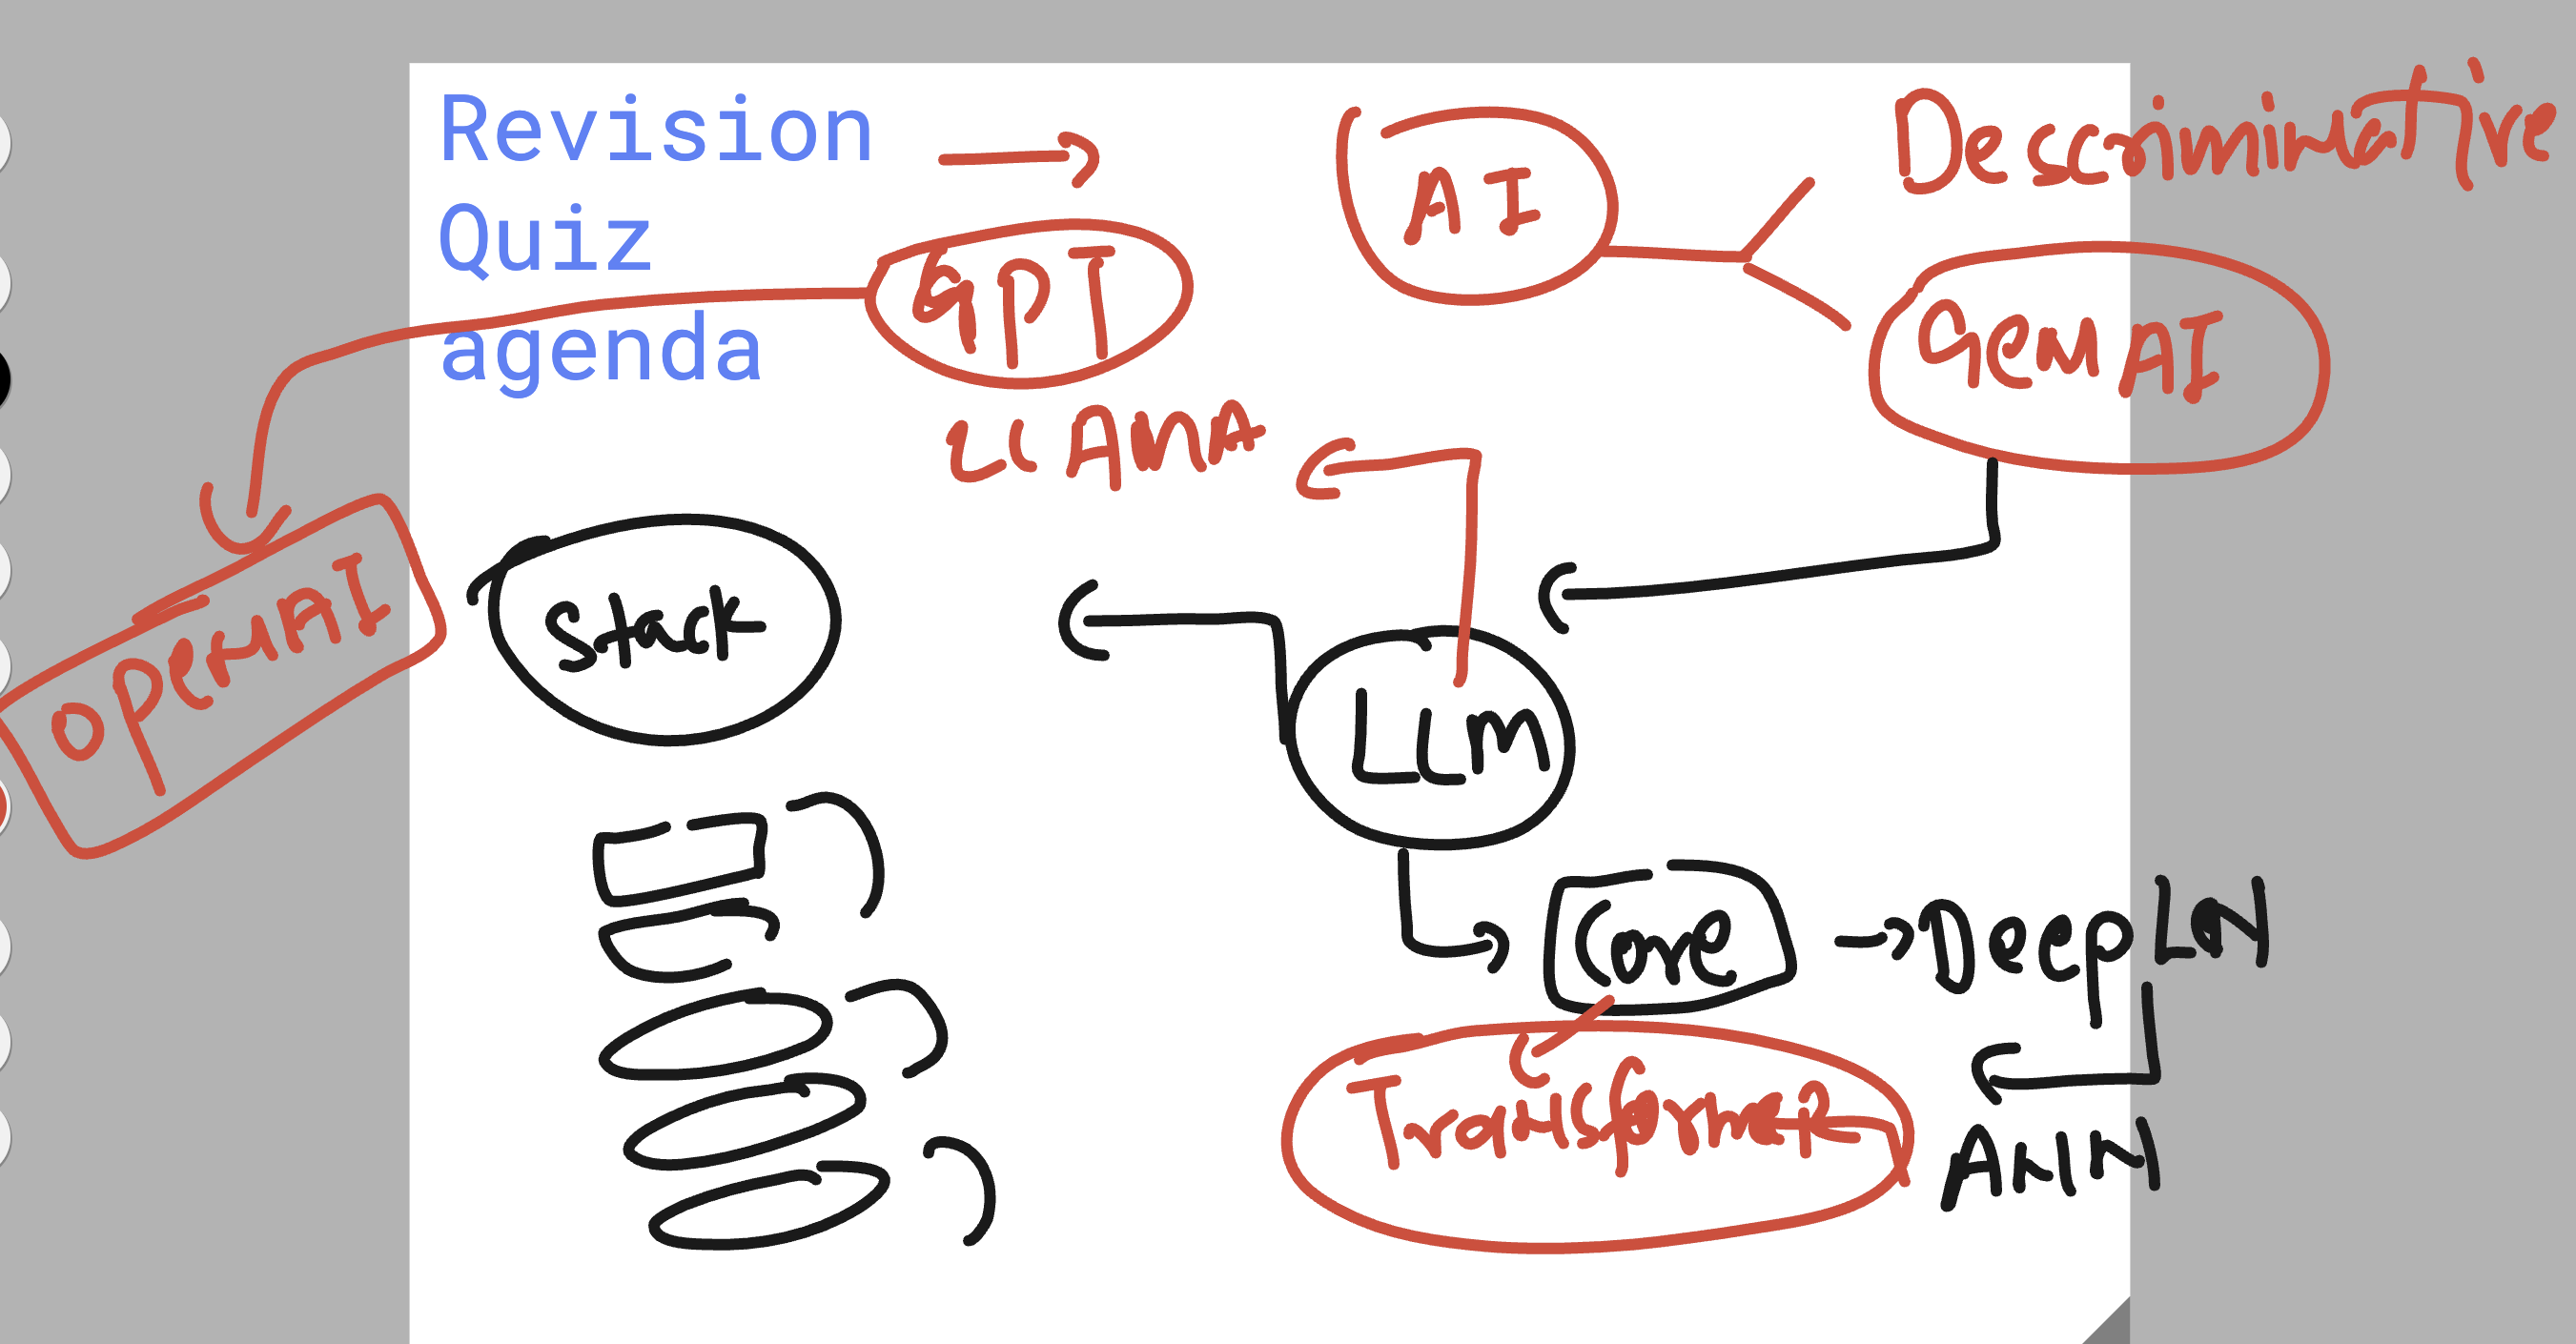 Revision
Quiz
agenda
AI
Descriminative
GenAI
GPT
LLAMA
OPENAI
Stack
LLM
Core
Deep LRN
Transformer
ANN